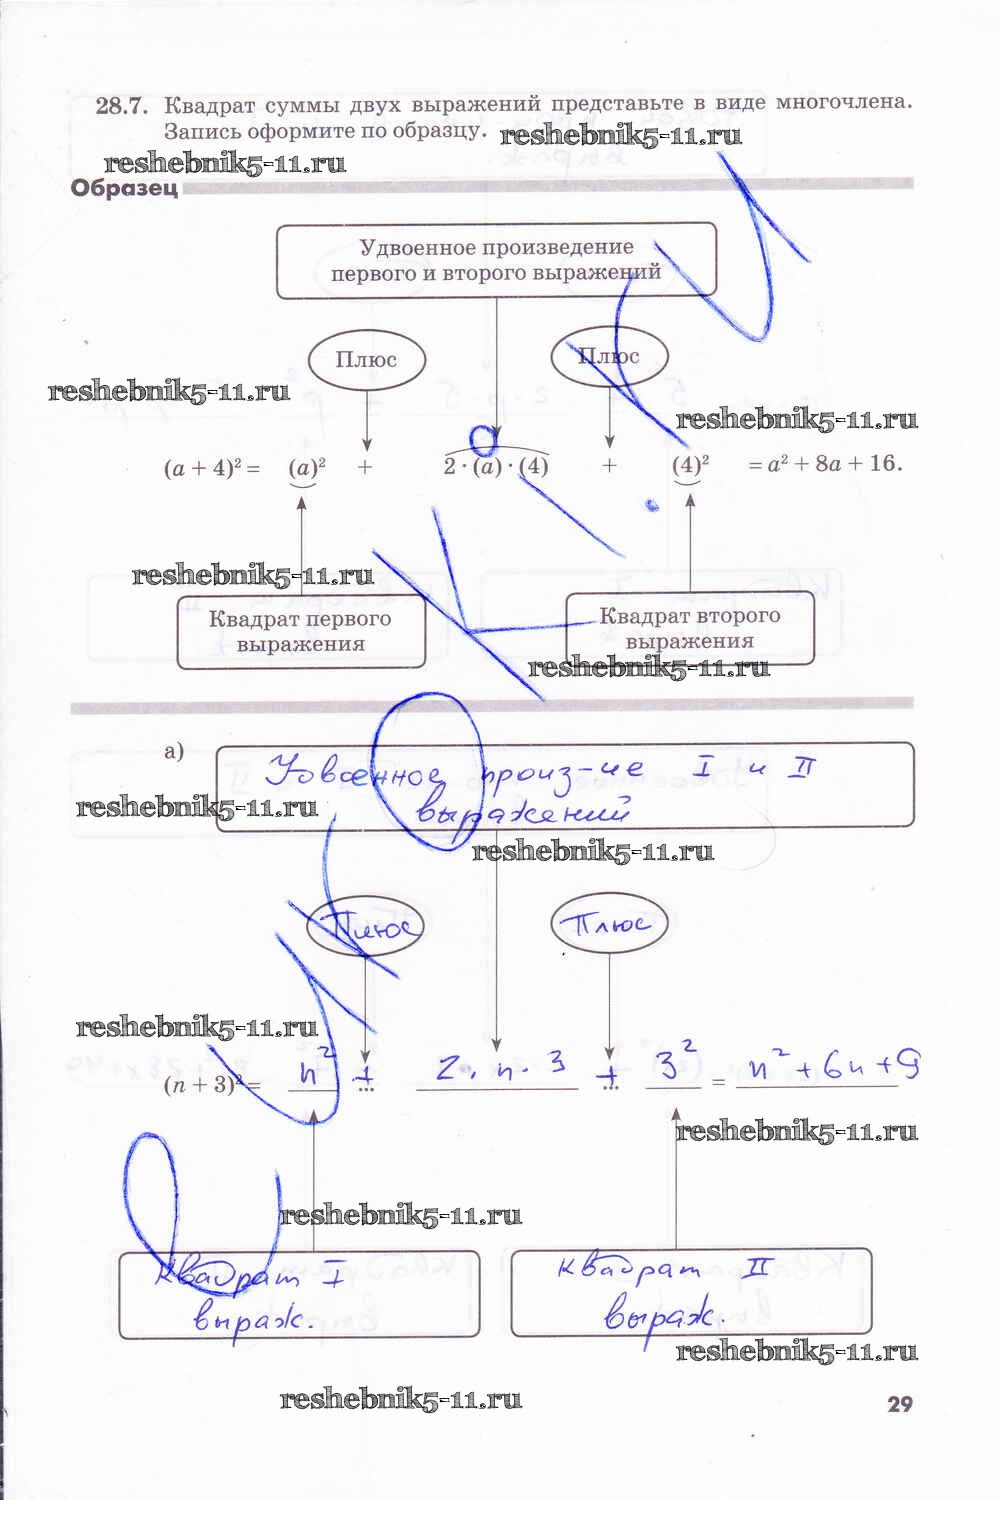 28.7. Квадрат суммы двух выражений представьте в виде многочлена.
Запись оформите по образцу. reshebnik5-11.ru
reshebnik5-11.ru
Образец
Удвоенное произведение
первого и второго выражений
Плюс
Плюс
reshebnik5-11.ru
reshebnik5-11.ru
(a + 4)² = (a)² + 2 · (a) · (4) + (4)² = a² + 8a + 16.
reshebnik5-11.ru
Квадрат первого
выражения
Квадрат второго
выражения
reshebnik5-11.ru
а)
Удвоенное произ-ие I и II
выражений
reshebnik5-11.ru
reshebnik5-11.ru
Плюс
Плюс
reshebnik5-11.ru
(n + 3)² = n² + ... 2 · n · 3 + ... 3² = n² + 6n + 9
reshebnik5-11.ru
reshebnik5-11.ru
Квадрат I
выраж.
квадрат II
выраж.
reshebnik5-11.ru
reshebnik5-11.ru
29